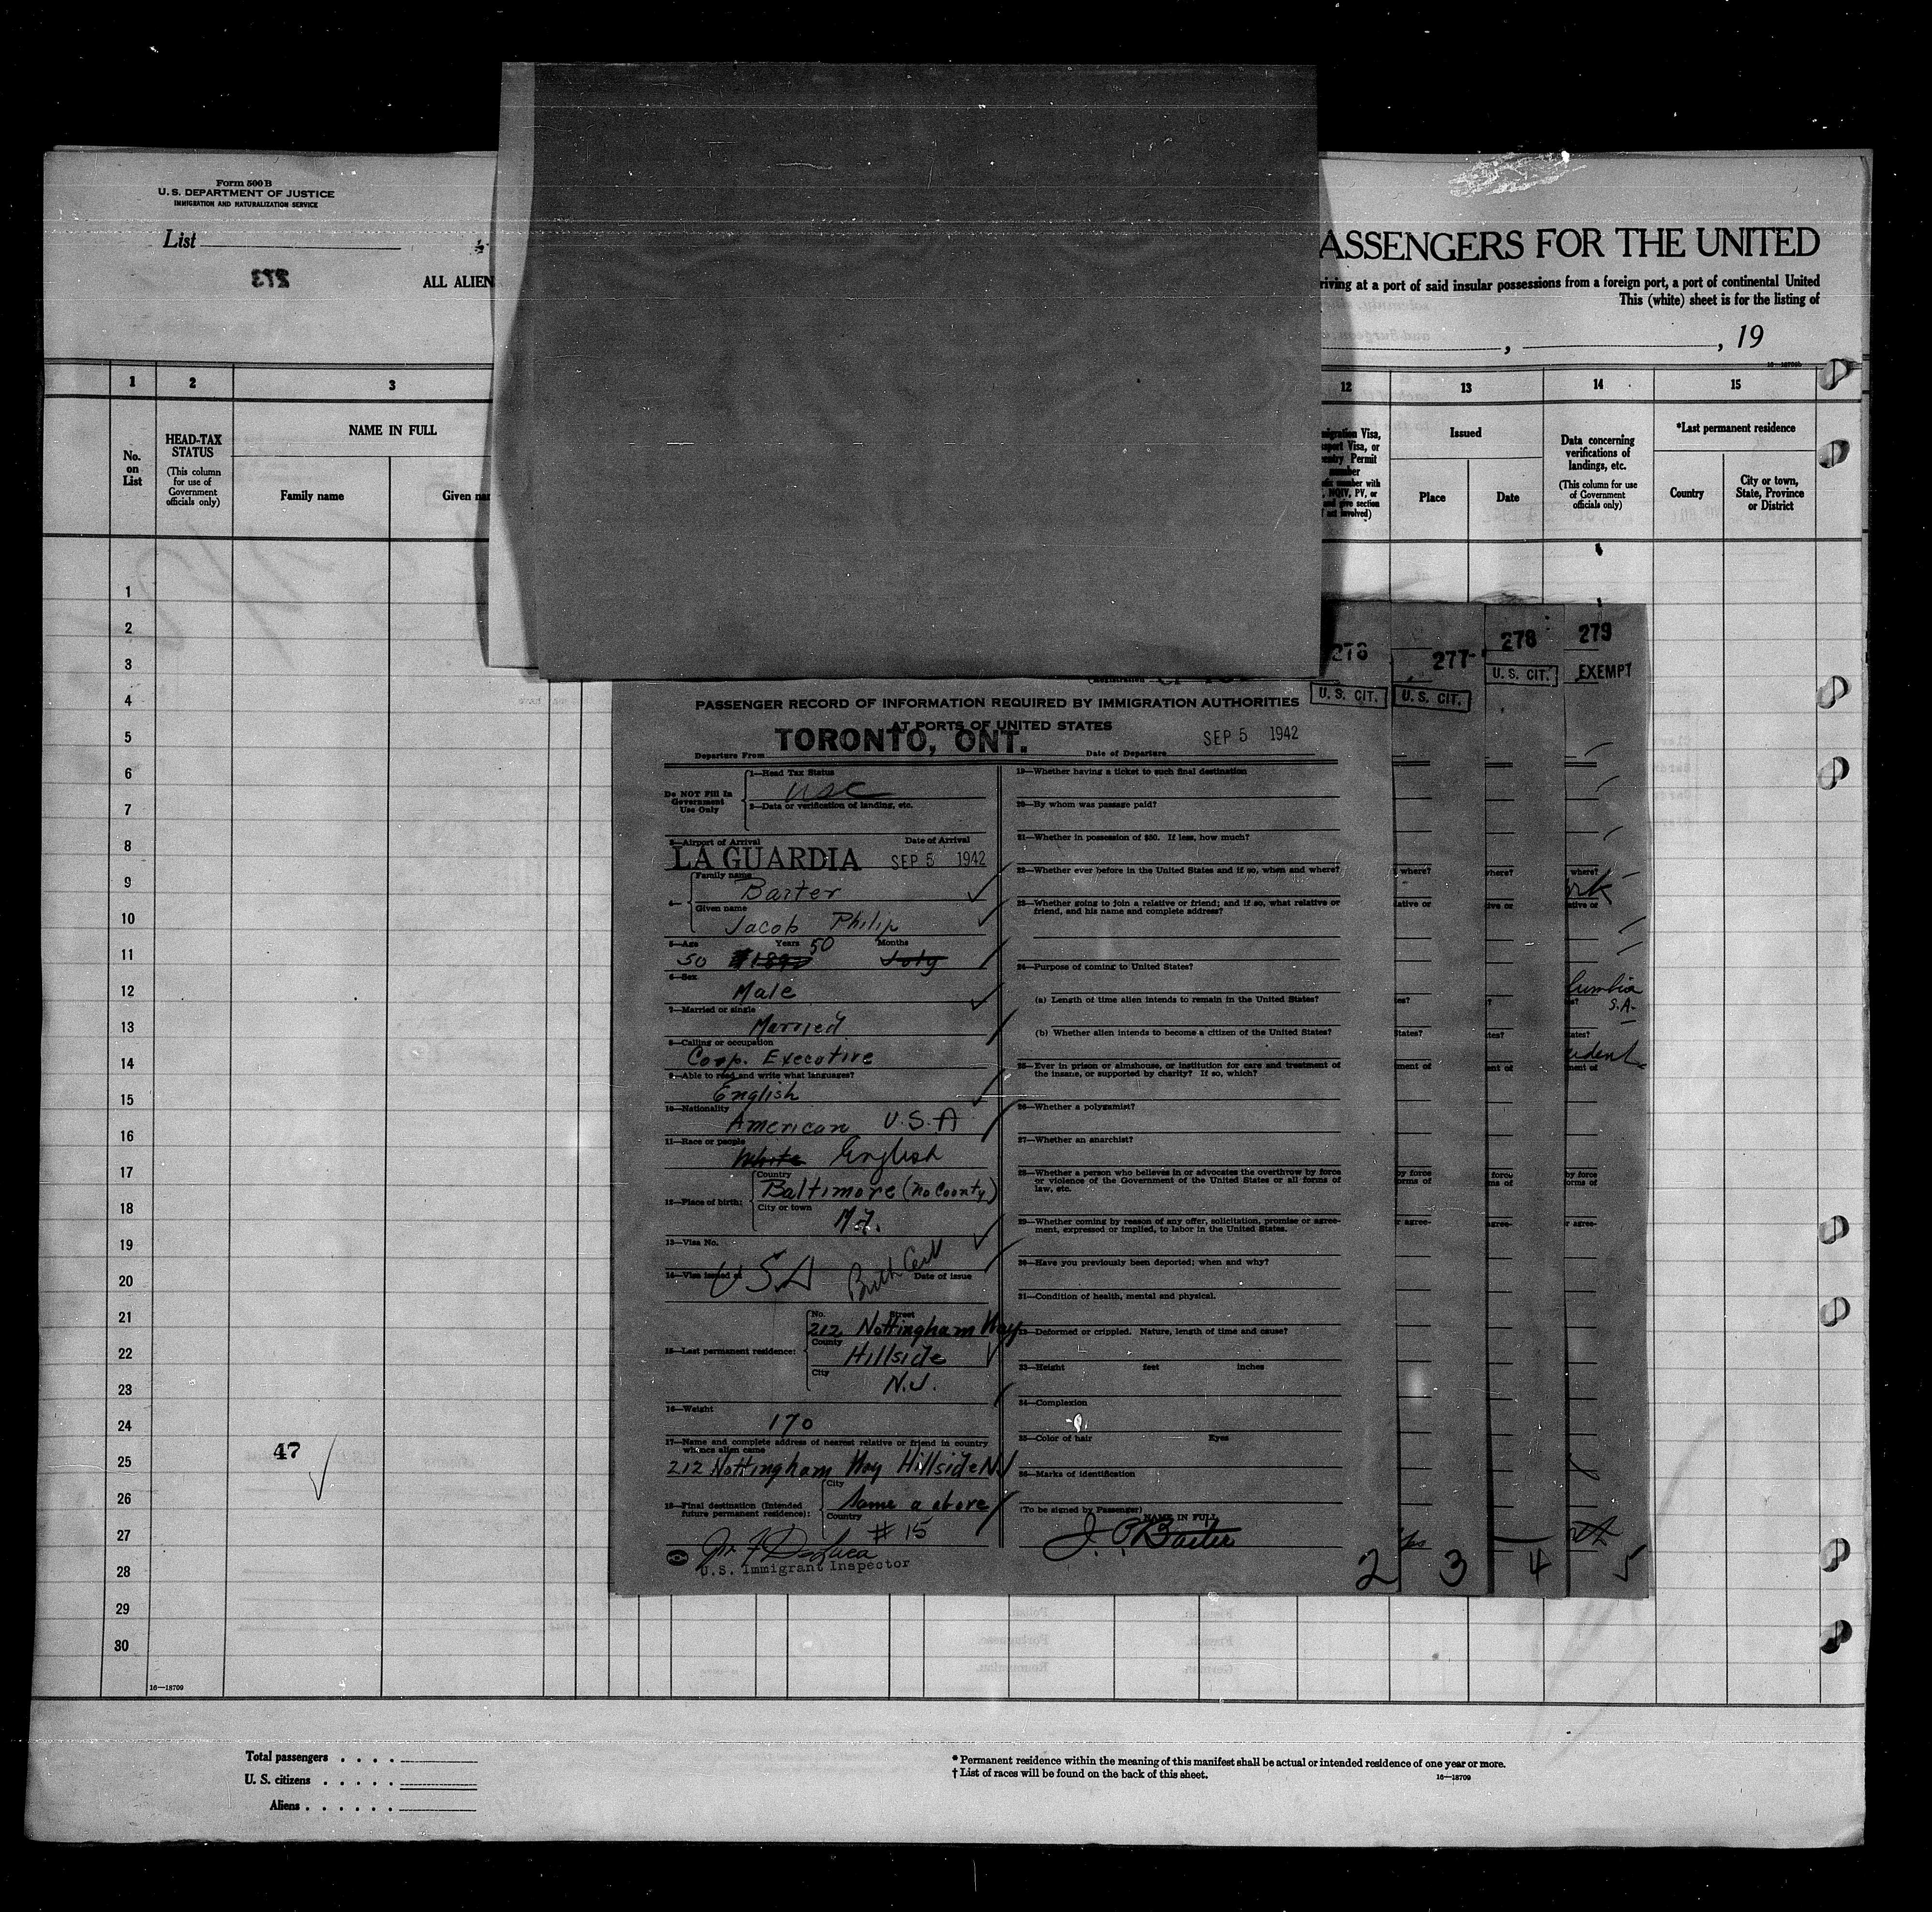 Form 500 B
U. S. DEPARTMENT OF JUSTICE
IMMIGRATION AND NATURALIZATION SERVICE
List
273
ALL ALIEN
ASSENGERS FOR THE UNITED
riving at a port of said insular possessions from a foreign port, a port of continental United
This (white) sheet is for the listing of
, , 19
1 2 3 12 13 14 15
No. on List
HEAD-TAX STATUS
(This column for use of Government officials only)
NAME IN FULL
Family name
Given nam
migration Visa,
sport Visa, or
entry Permit
number
Issued
Place
Date
Data concerning verifications of landings, etc.
(This column for use of Government officials only)
*Last permanent residence
Country
City or town, State, Province or District
1
2
3
4
5
6
7
8
9
10
11
12
13
14
15
16
17
18
19
20
21
22
23
24
25
26
27
28
29
30
47
16—18709
276
U. S. CIT.
277
U. S. CIT.
278
U. S. CIT.
279
EXEMPT
PASSENGER RECORD OF INFORMATION REQUIRED BY IMMIGRATION AUTHORITIES
AT PORTS OF UNITED STATES
Departure From TORONTO, ONT. Date of Departure SEP 5 1942
Do NOT Fill In Government Use Only
1—Head Tax Status
USC
2—Data or verification of landing, etc.
3—Airport of Arrival Date of Arrival
LA GUARDIA SEP 5 1942
4— Family name
Baxter
Given name
Jacob Philip
5—Age Years 50 Months
50 1892 July
6—Sex
Male
7—Married or single
Married
8—Calling or occupation
Coop. Executive
9—Able to read and write what languages?
English
10—Nationality
American U.S.A
11—Race or people
White English
12—Place of birth: Country
Baltimore (no County)
City or town
Md.
13—Visa No.
USA Birth Cert
14—Visa issued at Date of issue
15—Last permanent residence: No. Street
212 Nottingham Way
County
Hillside
City
N.J.
16—Weight
170
17—Name and complete address of nearest relative or friend in country whence alien came
212 Nottingham Way Hillside NJ
18—Final destination (Intended future permanent residence): City
Same a above
Country
# 15
U.S. Immigrant Inspector
19—Whether having a ticket to such final destination
20—By whom was passage paid?
21—Whether in possession of $50. If less, how much?
22—Whether ever before in the United States and if so, when and where?
23—Whether going to join a relative or friend; and if so, what relative or friend, and his name and complete address?
24—Purpose of coming to United States?
(a) Length of time alien intends to remain in the United States?
(b) Whether alien intends to become a citizen of the United States?
25—Ever in prison or almshouse, or institution for care and treatment of the insane, or supported by charity? If so, which?
26—Whether a polygamist?
27—Whether an anarchist?
28—Whether a person who believes in or advocates the overthrow by force or violence of the Government of the United States or all forms of law, etc.
29—Whether coming by reason of any offer, solicitation, promise or agreement, expressed or implied, to labor in the United States.
30—Have you previously been deported; when and why?
31—Condition of health, mental and physical.
32—Deformed or crippled. Nature, length of time and cause?
33—Height feet inches
34—Complexion
35—Color of hair Eyes
36—Marks of identification
(To be signed by Passenger) NAME IN FULL
J. P. Baxter
2 3 4 5
Total passengers . . . .
U. S. citizens . . . . .
Aliens . . . . . .
* Permanent residence within the meaning of this manifest shall be actual or intended residence of one year or more.
† List of races will be found on the back of this sheet.
16—18709